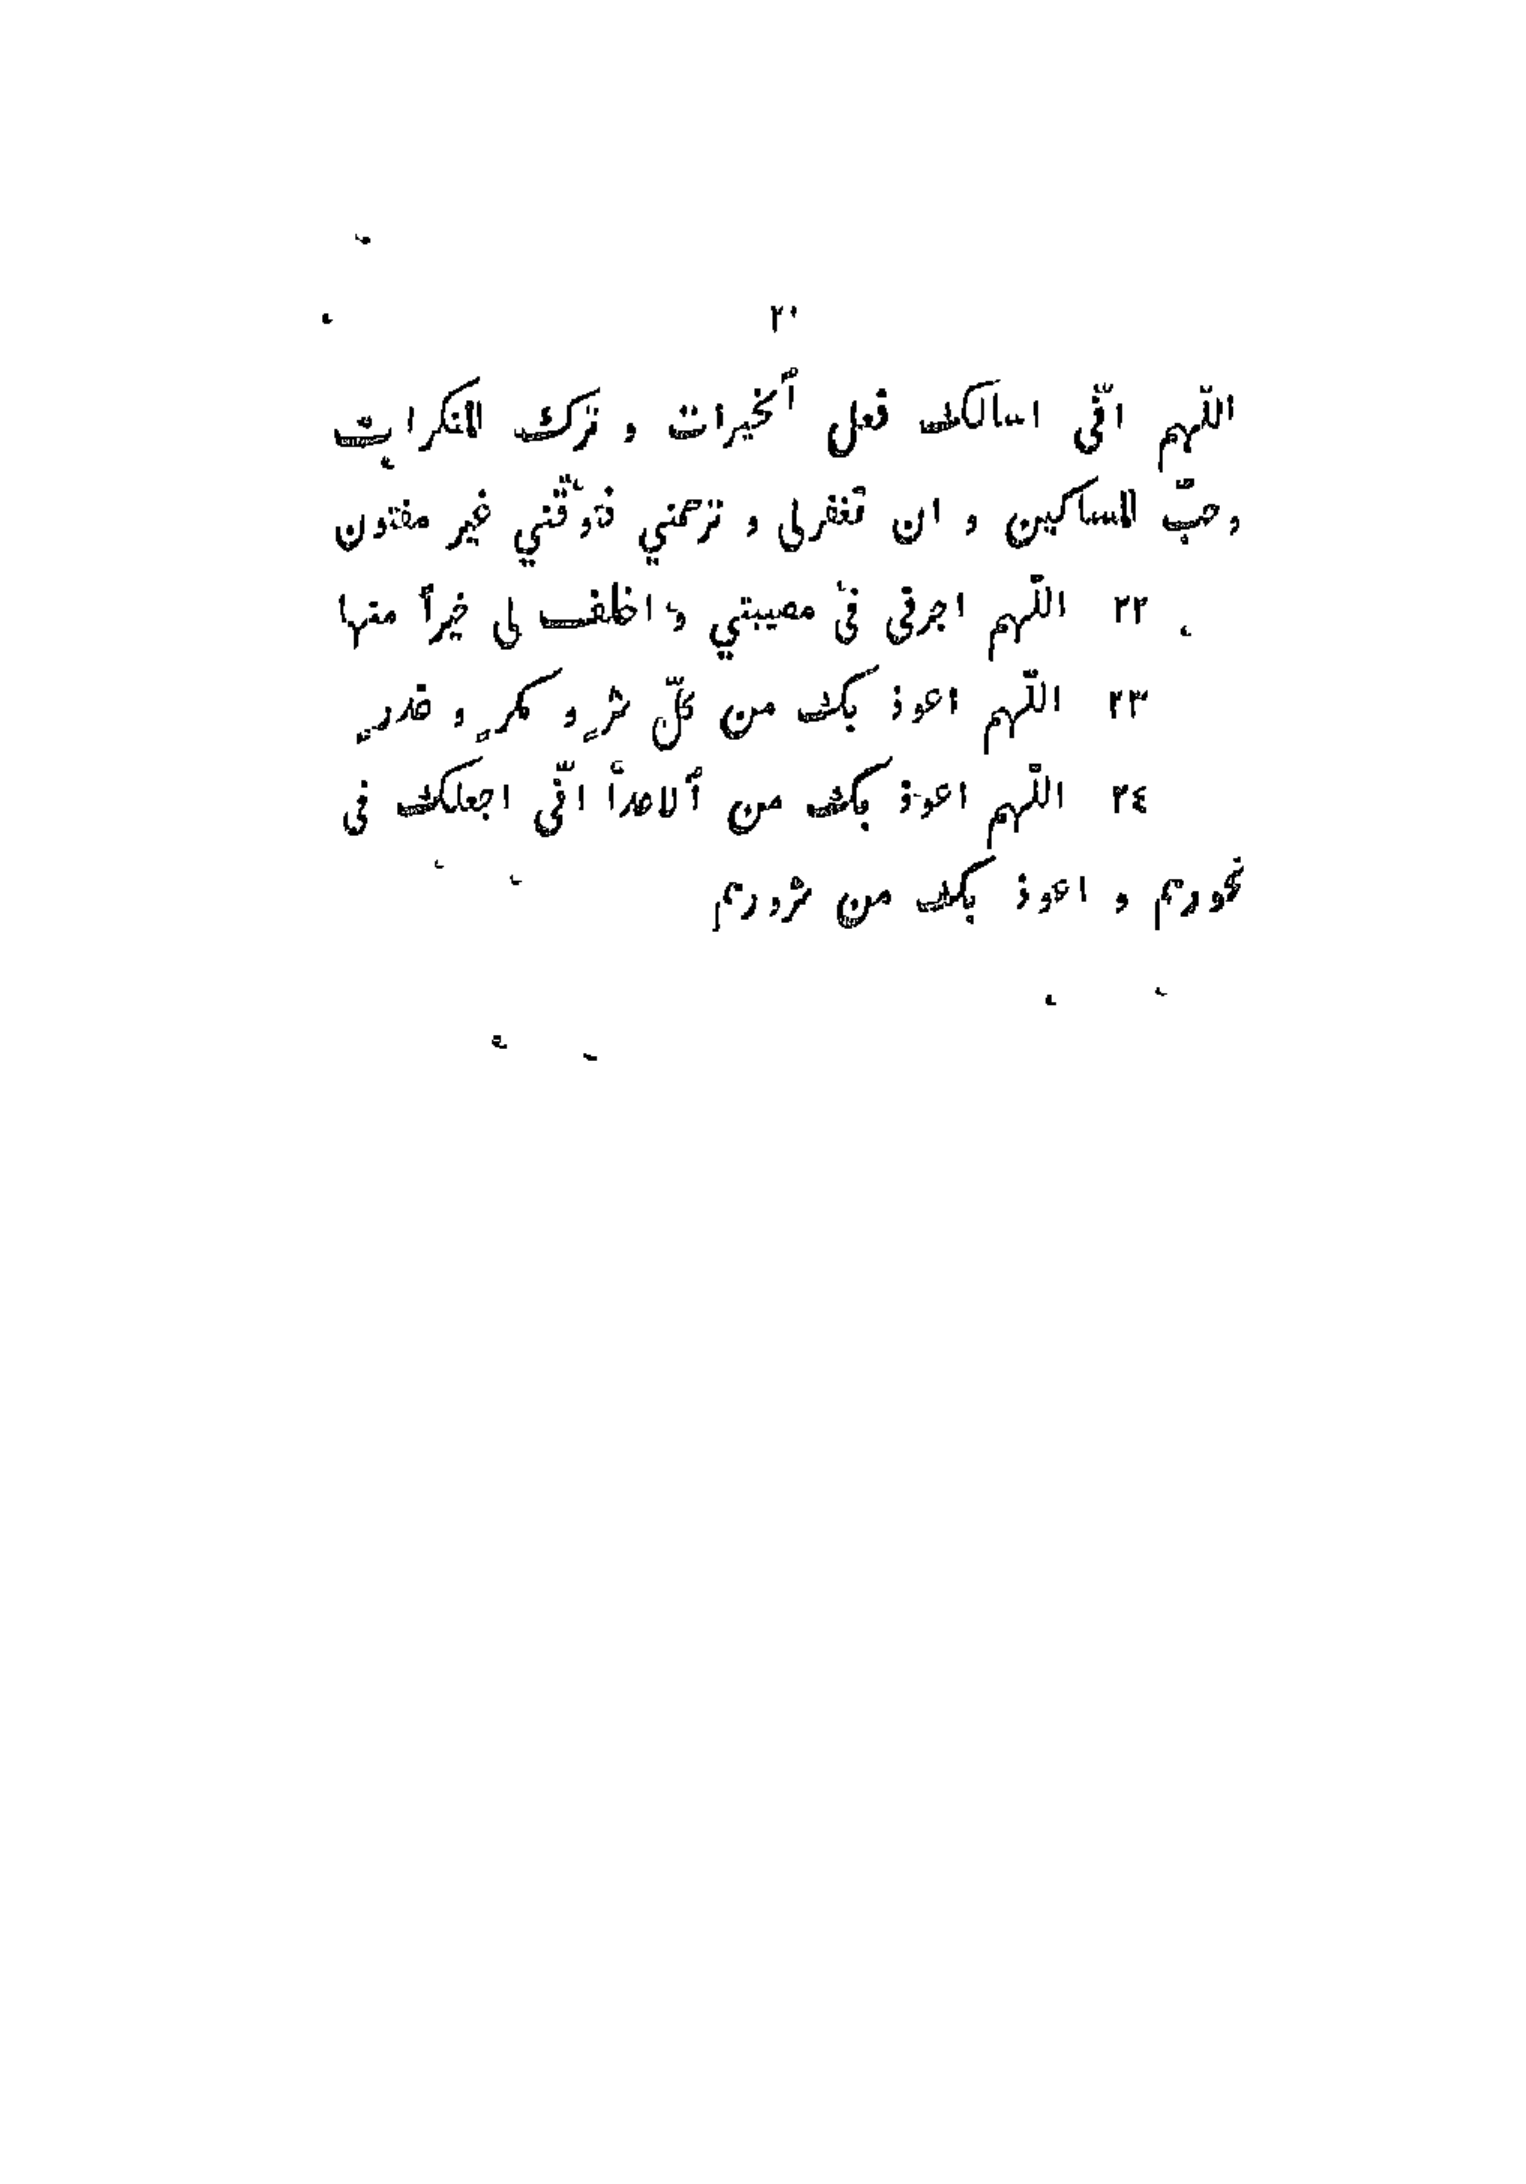 ٢٠
اللّهم انّى اسالك فعل ٱلخيرات و ترك المنكرات
و حبّ المساكين و ان تغفرلى و ترحمني فتوفّني غير مفتون
٢٢ اللّهم اجرنى فى مصيبتي و اخلف لى خيراً منها
٢٣ اللّهم اعوذ بك من كلّ شرٍ و مكرٍ و غدرٍ
٢٤ اللّهم اعوذ بك من ٱلاعدآ انّى اجعلك فى
نحورهم و اعوذ بك من شرورهم